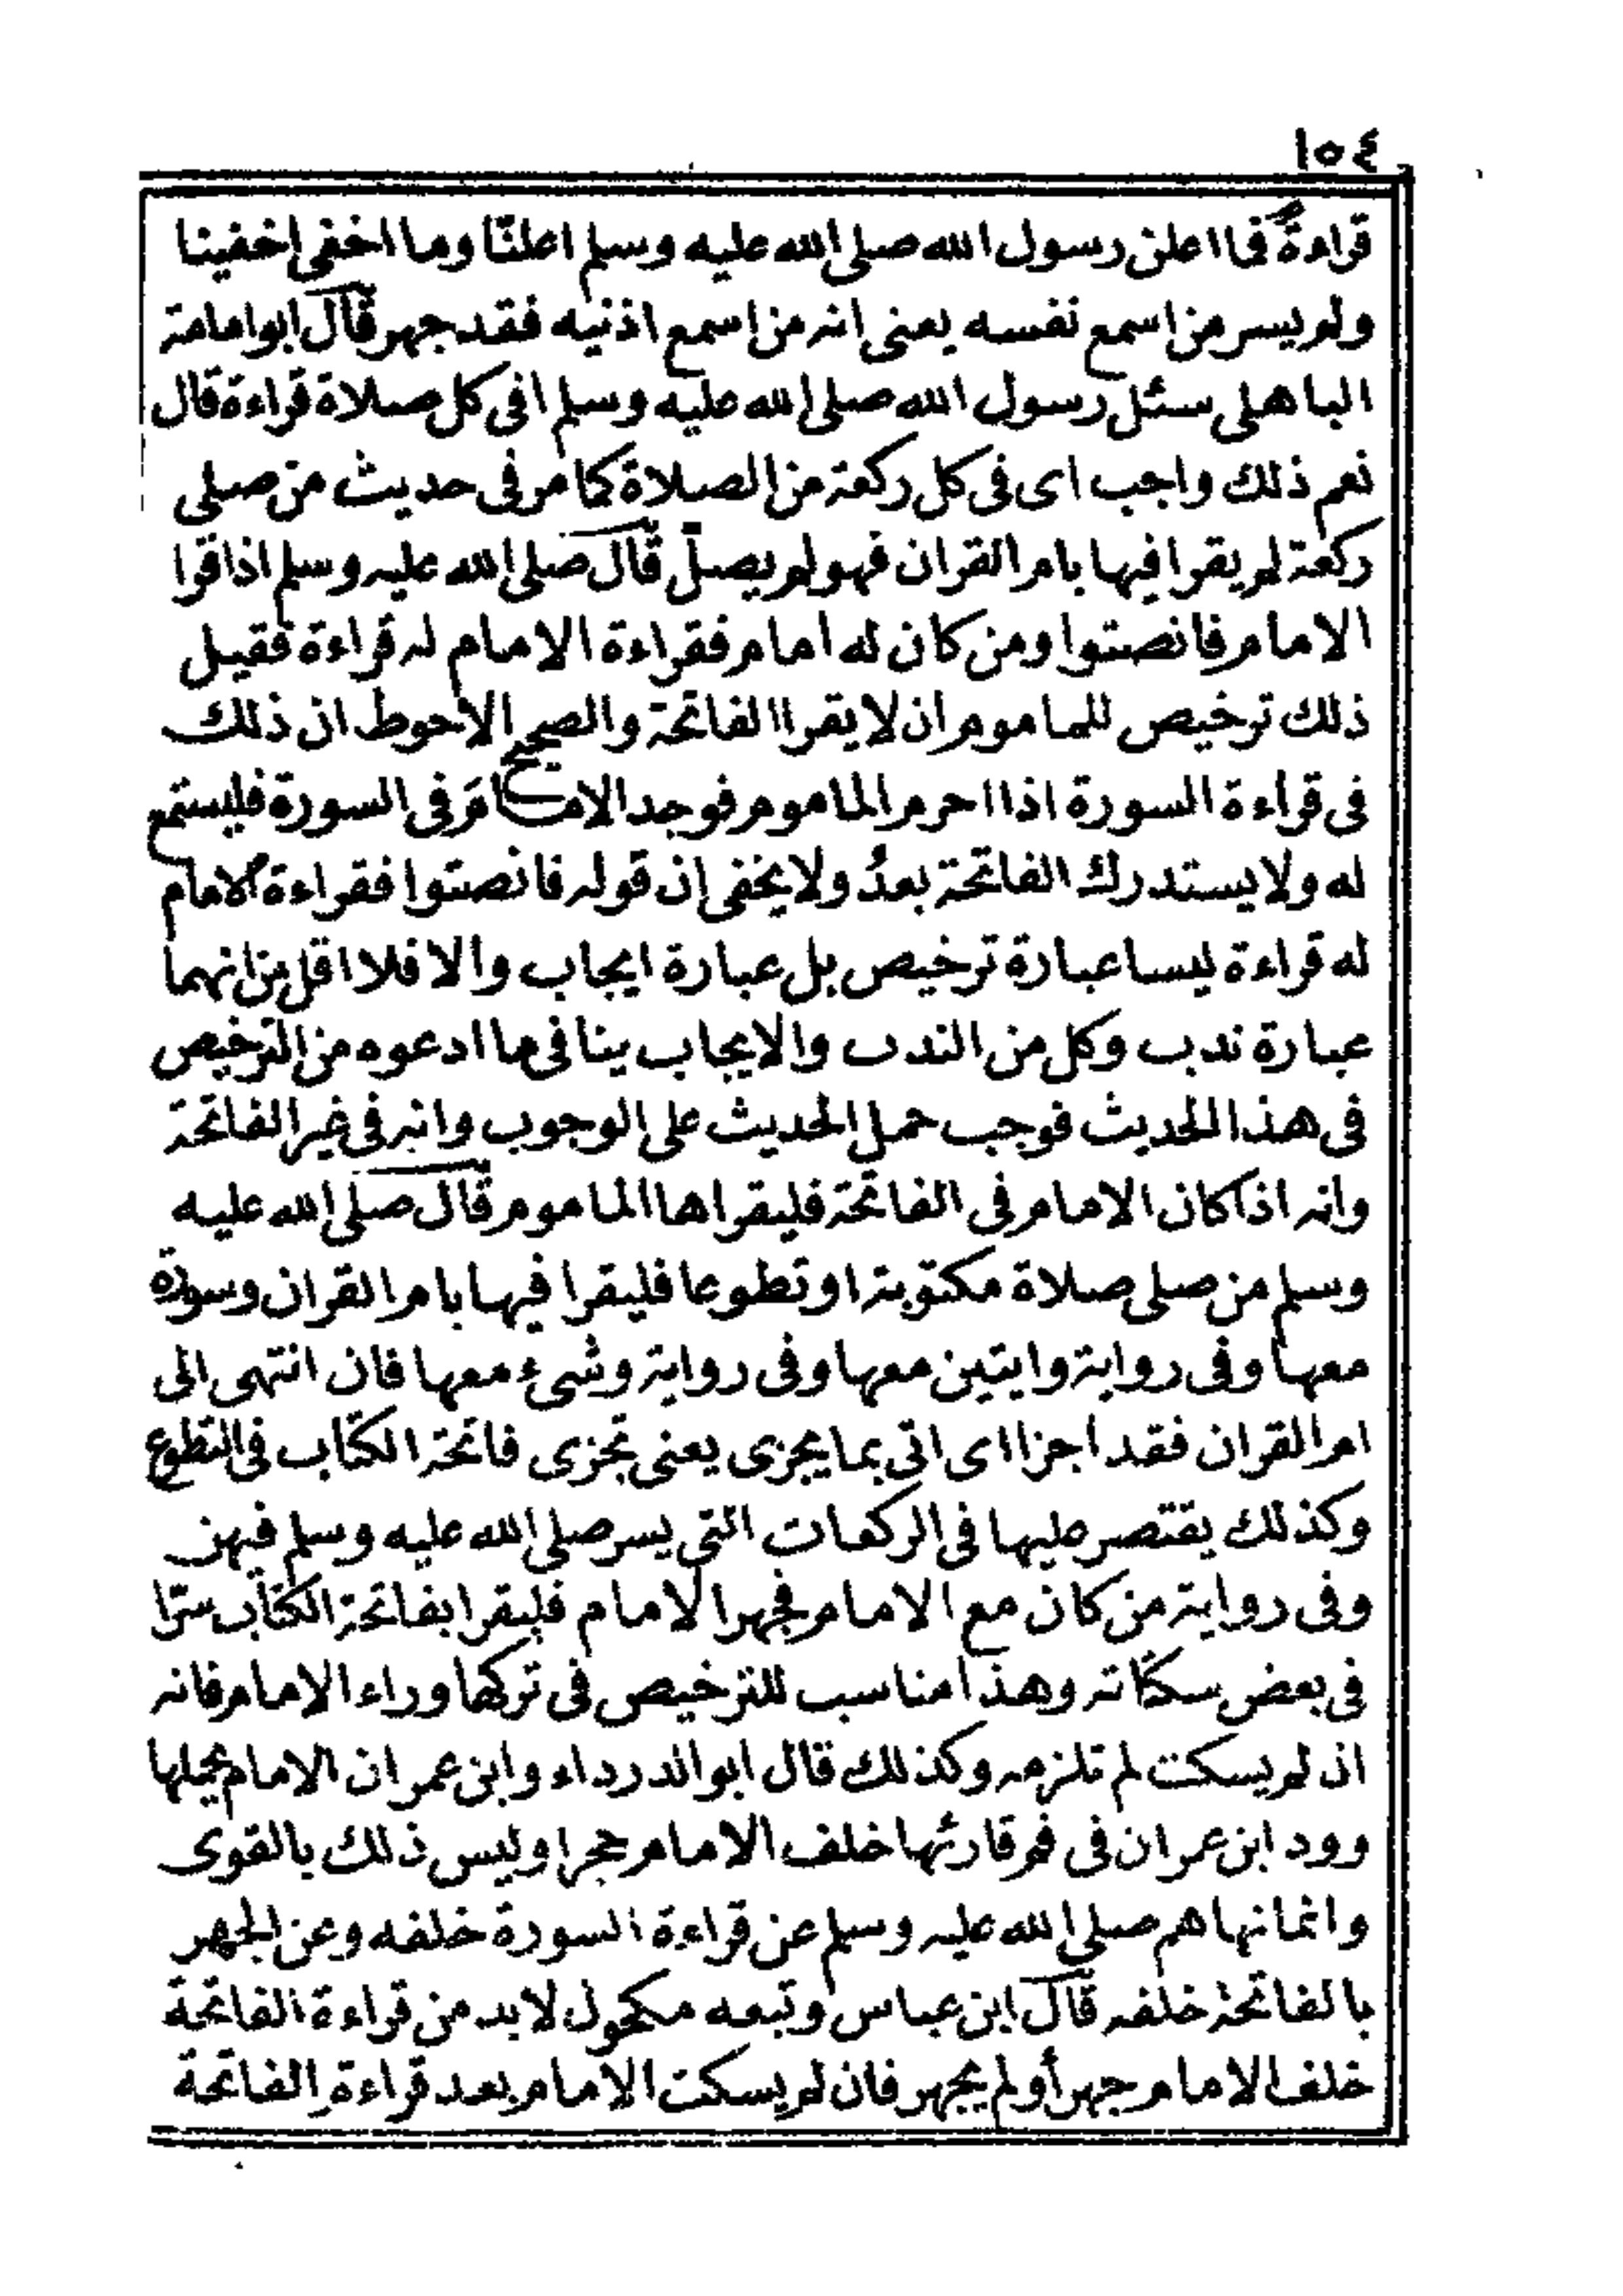 ١٥٤
قراءة فما اعلن رسول الله صلى الله عليه وسلم اعلنّا وما اخفى اخفينا
ولم يسر من اسمع نفسه يعنى انه من اسمع اذنيه فقد جهر قال ابو امامة
الباهلى سئل رسول الله صلى الله عليه وسلم افى كل صلاة قراءة قال
نعم ذلك واجب اى فى كل ركعة من الصلاة كما مر فى حديث من صلى
ركعة لم يقرا فيها بام القران فهو لم يصل قال صلى الله عليه وسلم اذا قرا
الامام فانصتوا ومن كان له امام فقراءة الامام له قراءة فقيل
ذلك ترخيص للماموم ان لا يقرا الفاتحة والصحيح الاحوط ان ذلك
فى قراءة السورة اذا احرم الماموم فوجد الامام فى السورة فليستمع
له ولا يستدرك الفاتحة بعدُ ولا يخفى ان قوله فانصتوا فقراءة الامام
له قراءة ليسا عبارة ترخيص بل عبارة ايجاب والا فلا اقل من انهما
عبارة ندب وكل من الندب والايجاب ينافى ما ادعوه من الترخيص
فى هذا الحديث فوجب حمل الحديث على الوجوب وانه فى غير الفاتحة
وانه اذا كان الامام فى الفاتحة فليقراها الماموم قال صلى الله عليه
وسلم من صلى صلاة مكتوبة او تطوعا فليقرا فيها بام القران وسورة
معها وفى رواية وايتين معها وفى رواية وشىء معها فان انتهى الى
ام القران فقد اجزا اى اتى بما يجزى يعنى تجزى فاتحة الكتاب فى التطوع
وكذلك يقتصر عليها فى الركعات التى يسر صلى الله عليه وسلم فيهن
وفى رواية من كان مع الامام فجهر الامام فليقرا بفاتحة الكتاب سرّا
فى بعض سكتاته وهذا مناسب للترخيص فى تركها وراء الامام فانه
اذ لم يسكت لم تلزمه وكذلك قال ابو الدرداء وابن عمر ان الامام يحملها
وود ابن عمر ان فى فم قارئها خلف الامام حجرا وليس ذلك بالقوى
وانما نهاهم صلى الله عليه وسلم عن قراءة السورة خلفه وعن الجهر
بالفاتحة خلفه قال ابن عباس وتبعه مكحول لا بد من قراءة الفاتحة
خلف الامام جهر أو لم يجهر فان لم يسكت الامام بعد قراءة الفاتحة